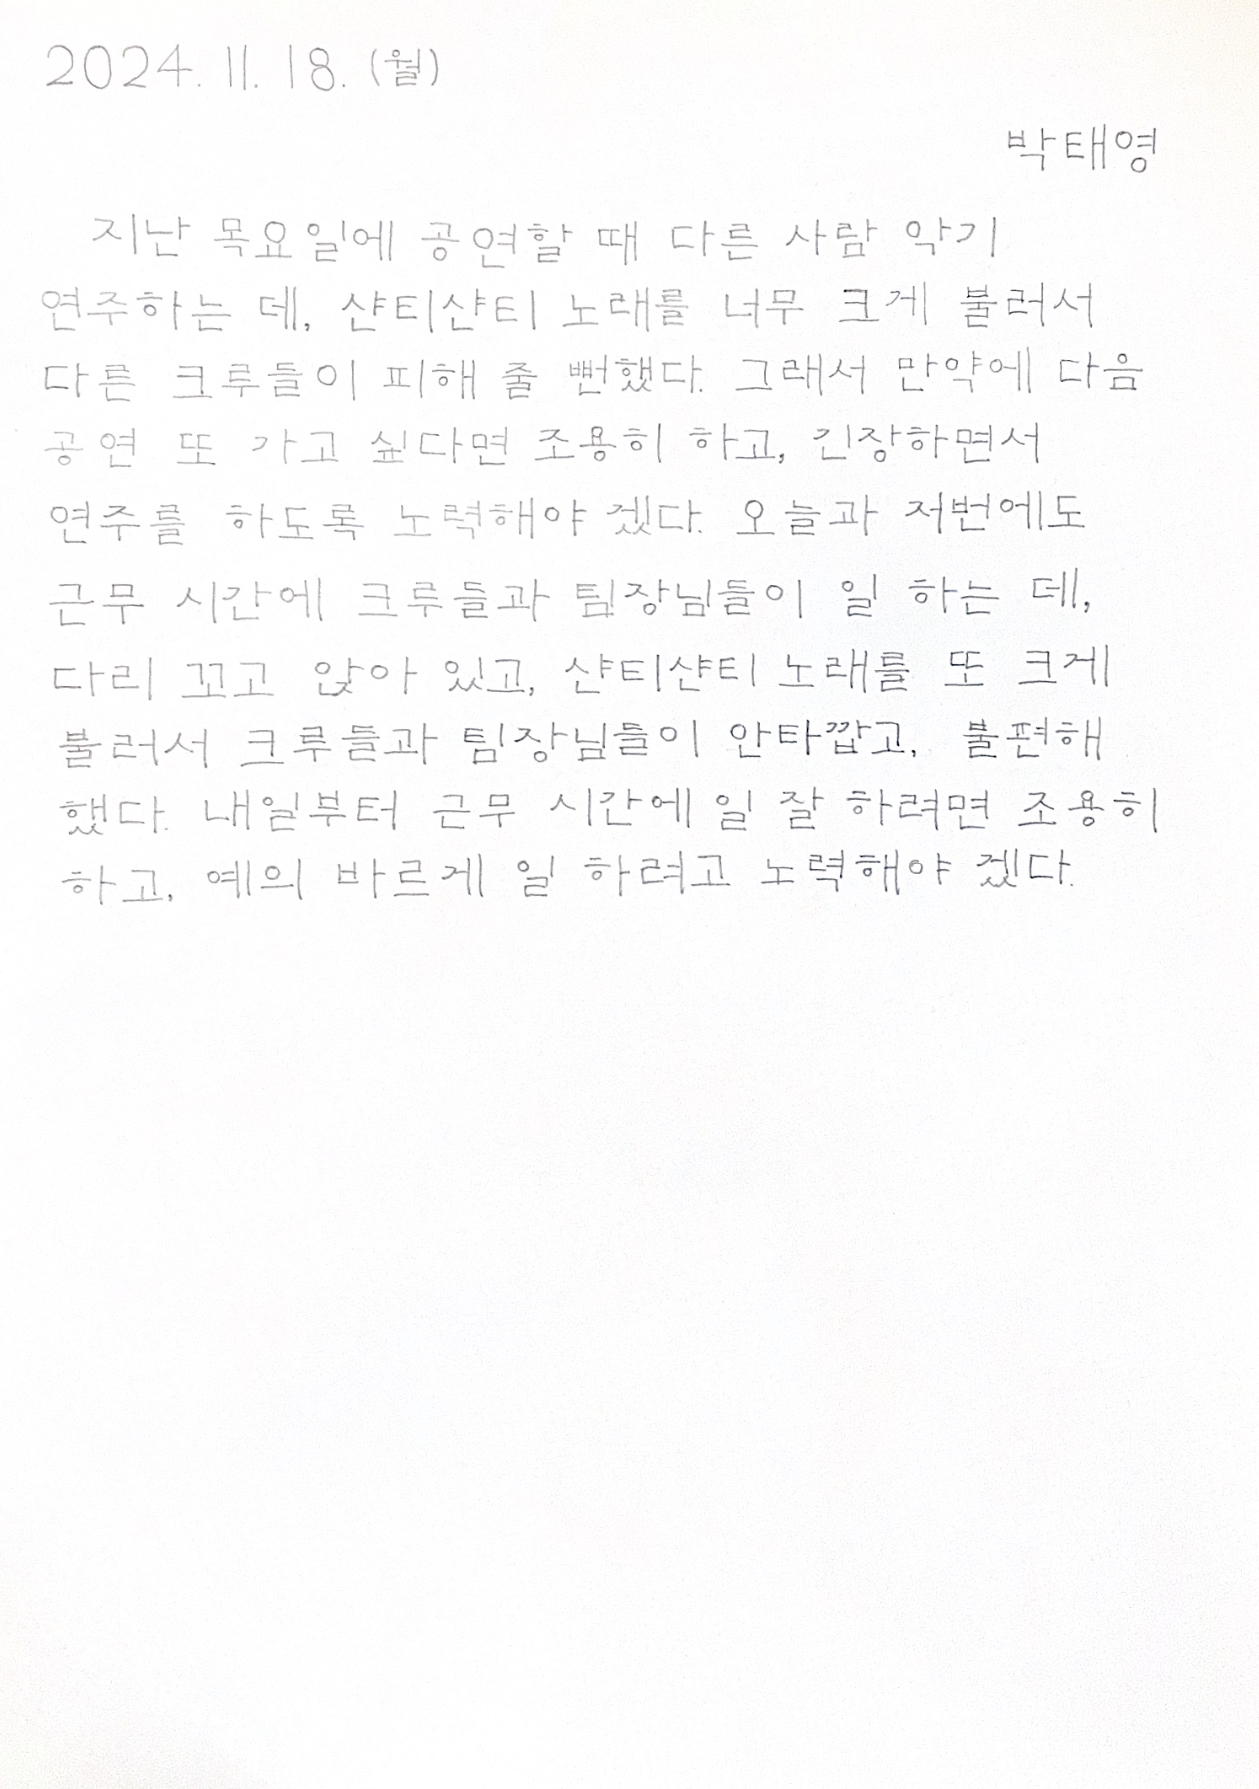 2024. 11. 18. (월)
박태영
지난 목요일에 공연할 때 다른 사람 악기
연주하는 데, 샨티샨티 노래를 너무 크게 불러서
다른 크루들이 피해 줄 뻔했다. 그래서 만약에 다음
공연 또 가고 싶다면 조용히 하고, 긴장하면서
연주를 하도록 노력해야 겠다. 오늘과 저번에도
근무 시간에 크루들과 팀장님들이 일 하는 데,
다리 꼬고 앉아 있고, 샨티샨티 노래를 또 크게
불러서 크루들과 팀장님들이 안타깝고, 불편해
했다. 내일부터 근무 시간에 일 잘 하려면 조용히
하고, 예의 바르게 일 하려고 노력해야 겠다.